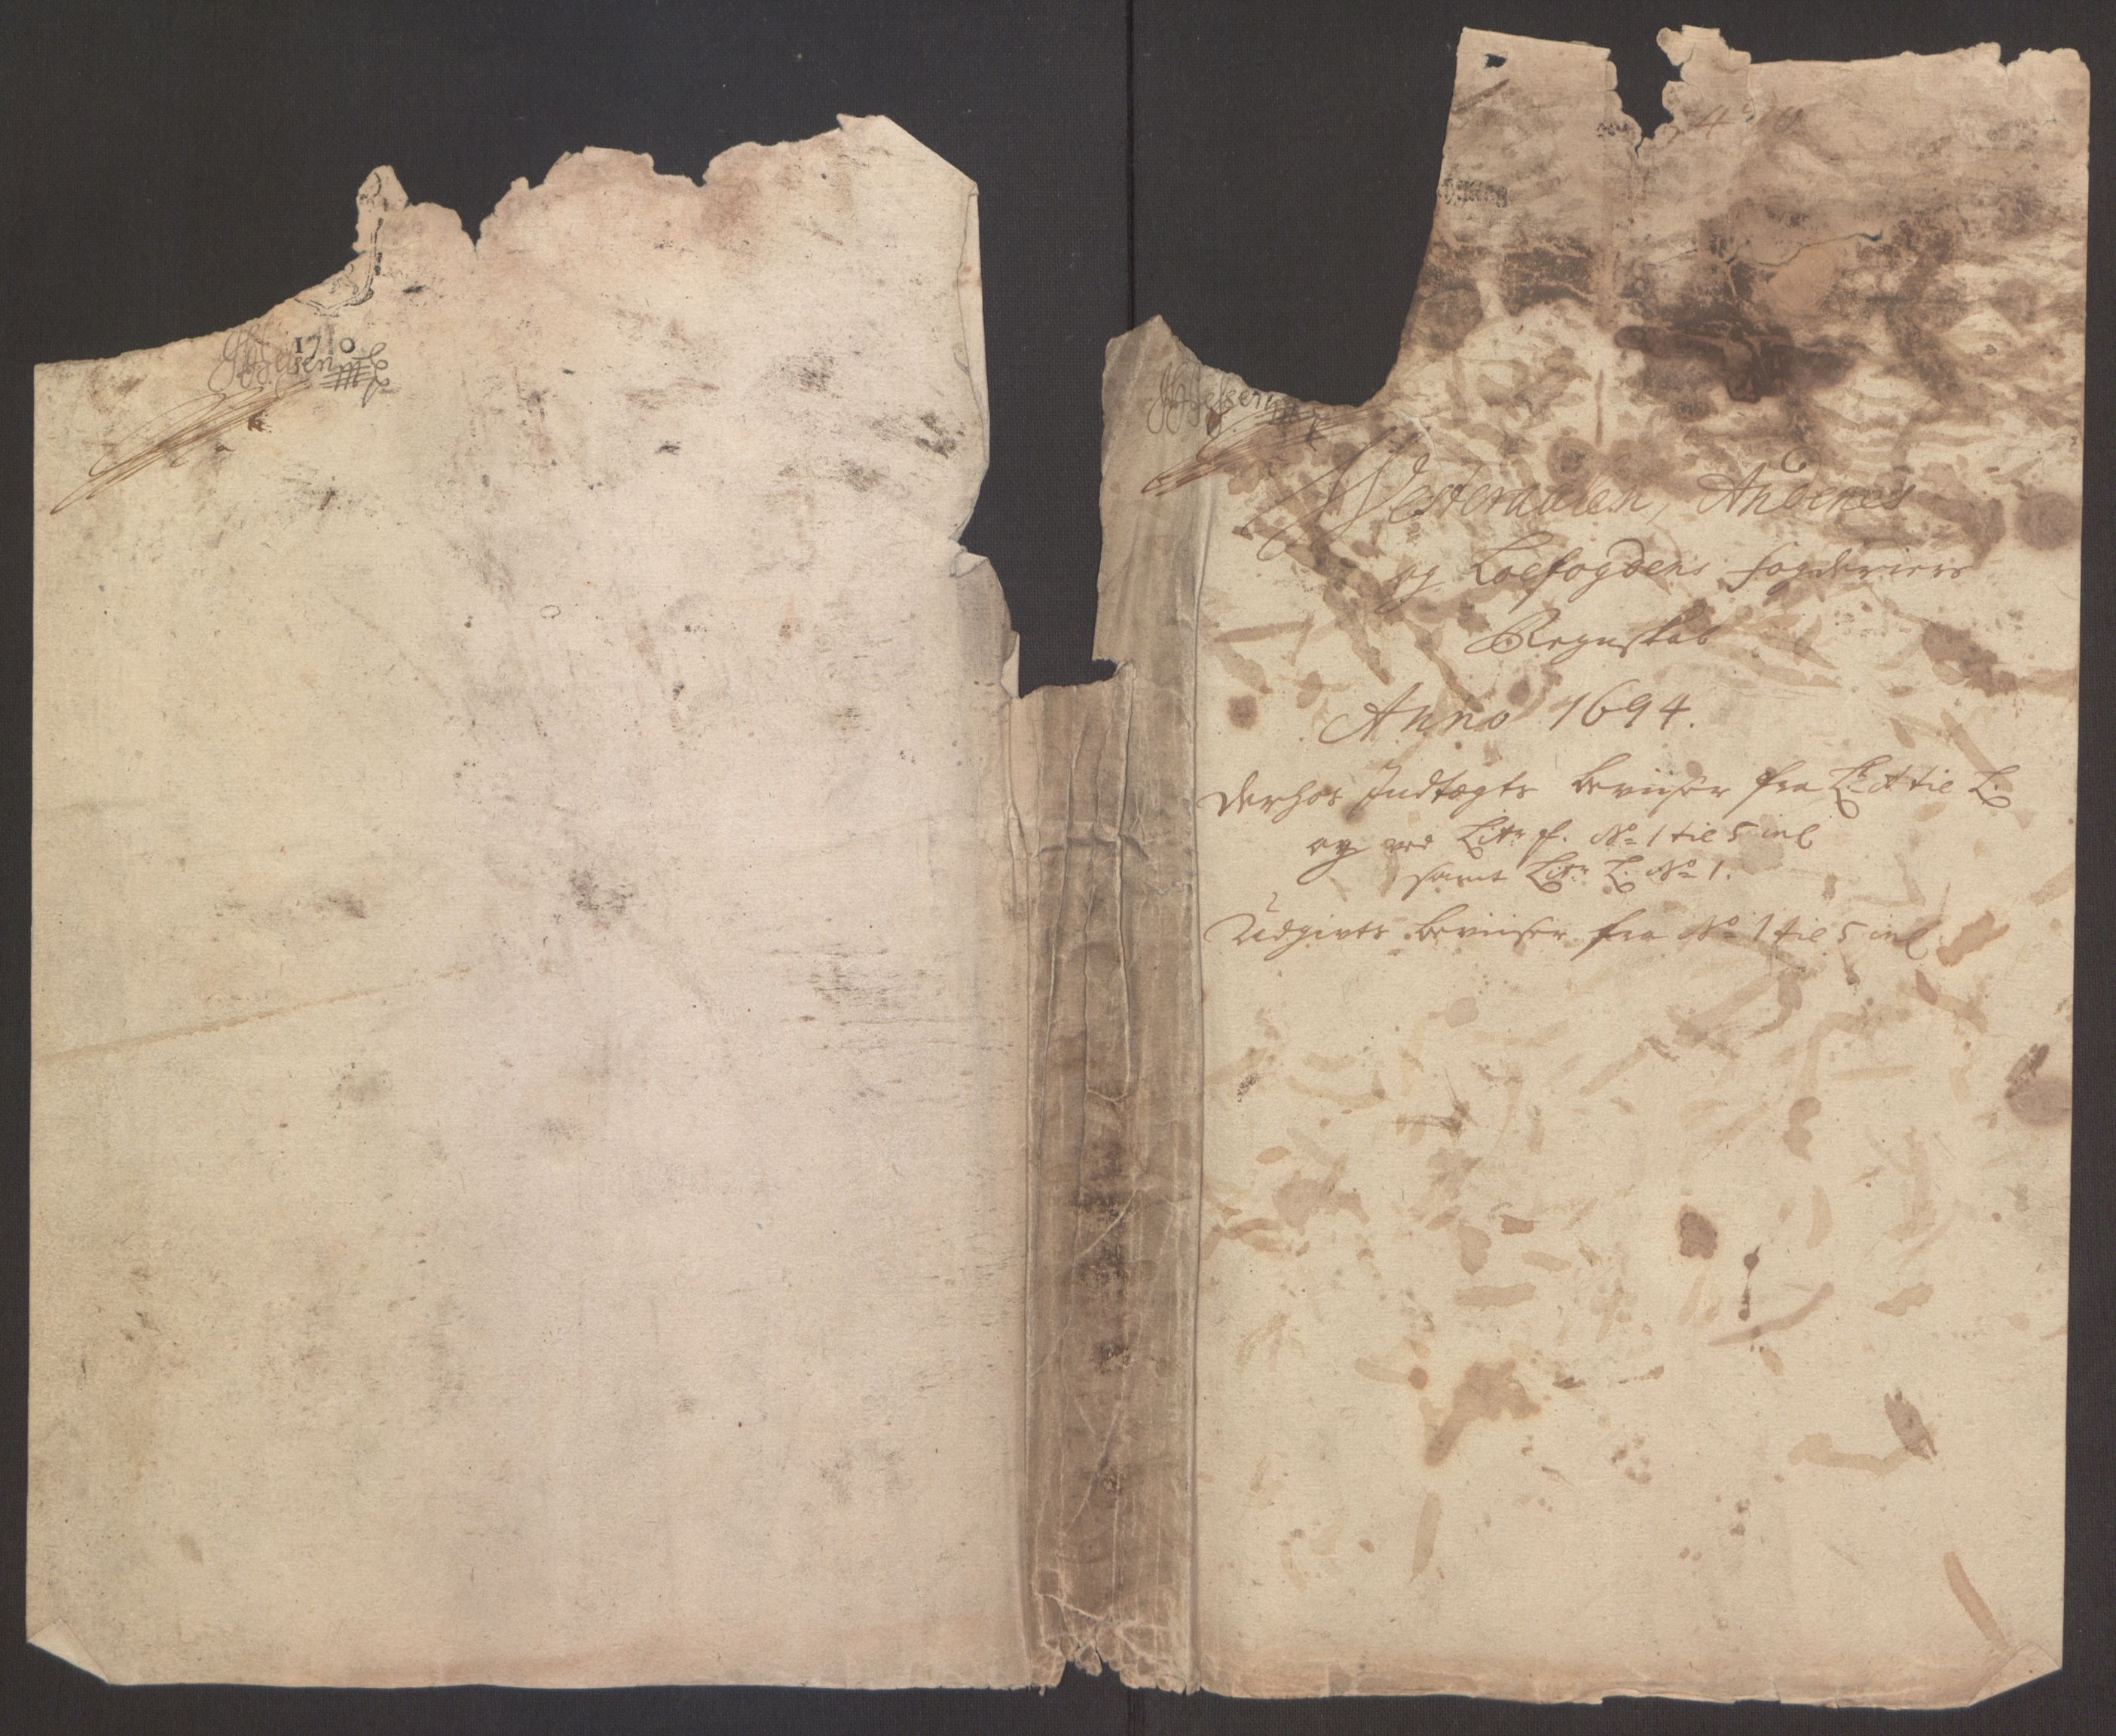 1710
Westeraalen, Andenes
og Loefogdens fogderiers
Regnskab
Anno 1694.
Derhos Indtægts beviiser fra Lr. A til L.
og ved Litr. f. No. 1 til 5 incl
samt Litr. L. No. 1.
Udgivts beviiser fra No. 1 til 5 incl